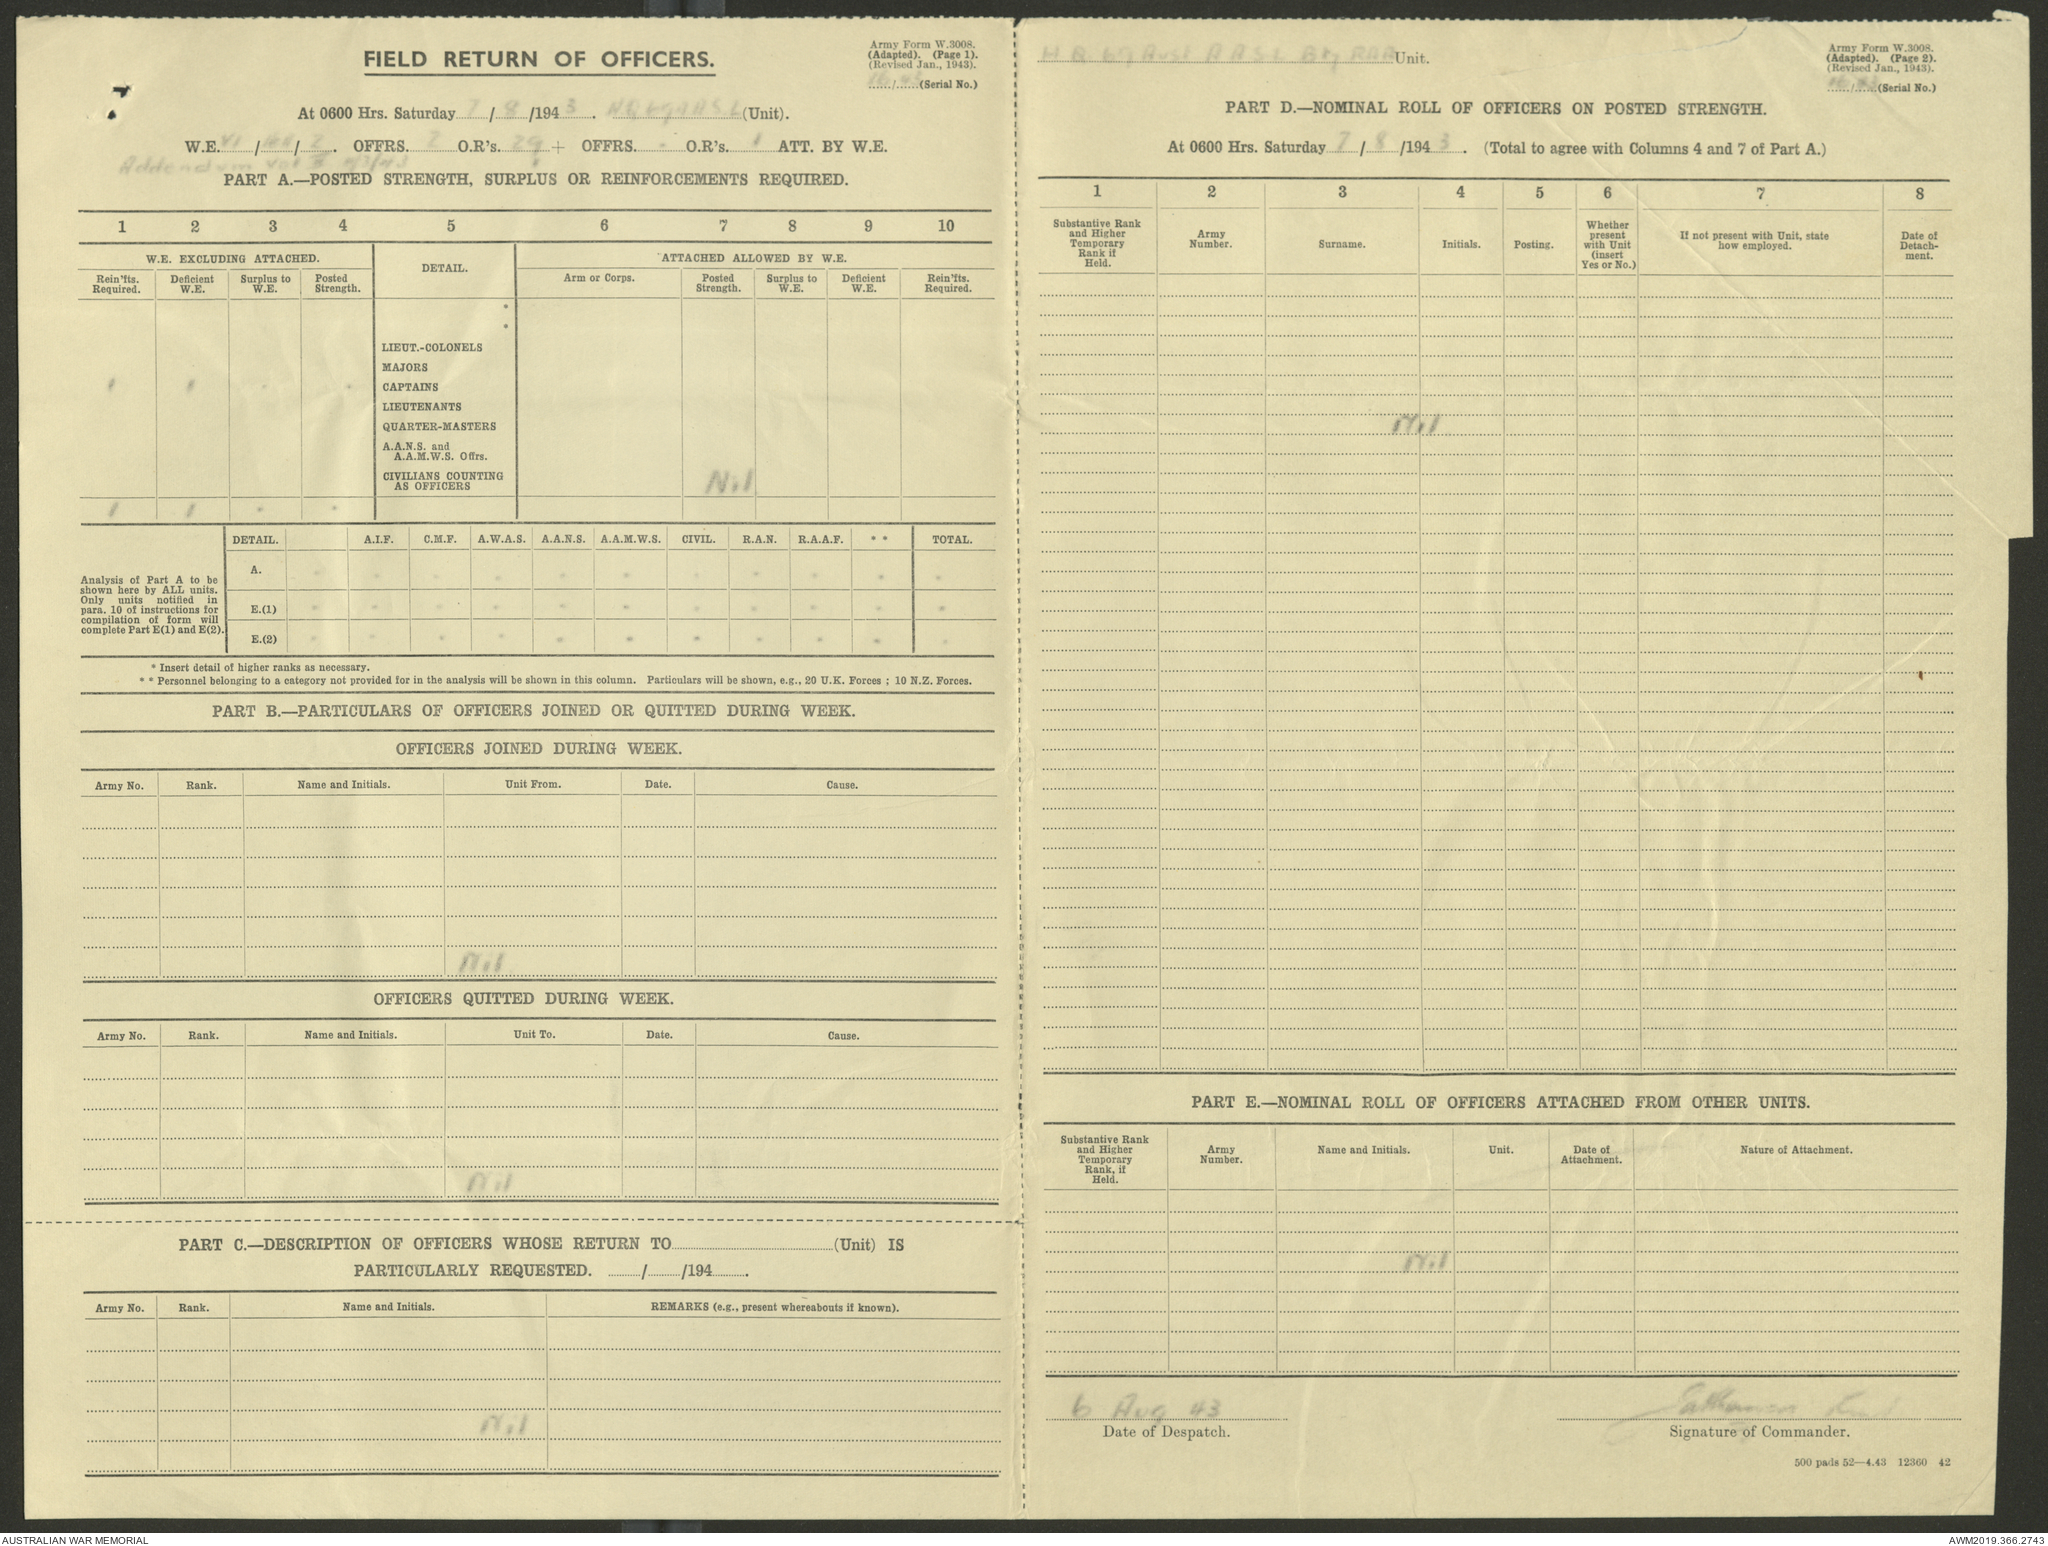 FIELD RETURN OF OFFICERS.
Army Form W.3008.
(Adapted). (Page 1).
(Revised Jan., 1943).
(Serial No.)
At 0600 Hrs. Saturday 7/8/1943. (Unit).
W.E. OFFRS. 2 O.R's. 29 + OFFRS. - O.R's. 1 ATT. BY W.E.
Addendum
PART A.—POSTED STRENGTH, SURPLUS OR REINFORCEMENTS REQUIRED.
1 2 3 4 5 6 7 8 9 10
W.E. EXCLUDING ATTACHED. DETAIL. ATTACHED ALLOWED BY W.E.
Rein'fts. Required. Deficient W.E. Surplus to W.E. Posted Strength. Arm or Corps. Posted Strength. Surplus to W.E. Deficient W.E. Rein'fts. Required.
*
*
LIEUT.-COLONELS
MAJORS
1 1 - - CAPTAINS
LIEUTENANTS
QUARTER-MASTERS
A.A.N.S. and
A.A.M.W.S. Offrs.
CIVILIANS COUNTING
AS OFFICERS
Nil
1 1 - -
DETAIL. A.I.F. C.M.F. A.W.A.S. A.A.N.S. A.A.M.W.S. CIVIL. R.A.N. R.A.A.F. * * TOTAL.
Analysis of Part A to be
shown here by ALL units.
Only units notified in
para. 10 of instructions for
compilation of form will
complete Part E(1) and E(2).
A. - - - - - - - - - -  -
E.(1) - - - - - - - - - - -
E.(2) - - - - - - - - - - -
* Insert detail of higher ranks as necessary.
* * Personnel belonging to a category not provided for in the analysis will be shown in this column. Particulars will be shown, e.g., 20 U.K. Forces ; 10 N.Z. Forces.
PART B.—PARTICULARS OF OFFICERS JOINED OR QUITTED DURING WEEK.
OFFICERS JOINED DURING WEEK.
Army No. Rank. Name and Initials. Unit From. Date. Cause.
Nil
OFFICERS QUITTED DURING WEEK.
Army No. Rank. Name and Initials. Unit To. Date. Cause.
Nil
PART C.—DESCRIPTION OF OFFICERS WHOSE RETURN TO (Unit) IS
PARTICULARLY REQUESTED. / /194 .
Army No. Rank. Name and Initials. REMARKS (e.g., present whereabouts if known).
Nil
H Q 69 Aust A A S L Bty RAA Unit.
Army Form W.3008.
(Adapted). (Page 2).
(Revised Jan., 1943).
(Serial No.)
PART D.—NOMINAL ROLL OF OFFICERS ON POSTED STRENGTH.
At 0600 Hrs. Saturday 7/8/1943. (Total to agree with Columns 4 and 7 of Part A.)
1 2 3 4 5 6 7 8
Substantive Rank and Higher Temporary Rank if Held. Army Number. Surname. Initials. Posting. Whether present with Unit (insert Yes or No.) If not present with Unit, state how employed. Date of Detach-ment.
Nil
PART E.—NOMINAL ROLL OF OFFICERS ATTACHED FROM OTHER UNITS.
Substantive Rank and Higher Temporary Rank, if Held. Army Number. Name and Initials. Unit. Date of Attachment. Nature of Attachment.
Nil
6 Aug 43
Date of Despatch. Signature of Commander.
500 pads 52—4.43 12360 42
AUSTRALIAN WAR MEMORIAL
AWM2019.366.2743